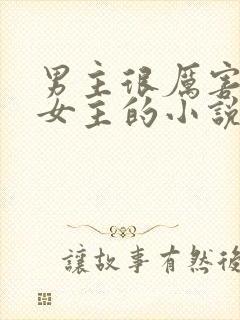 男主很厲害
女主的小說
讓故事有然後